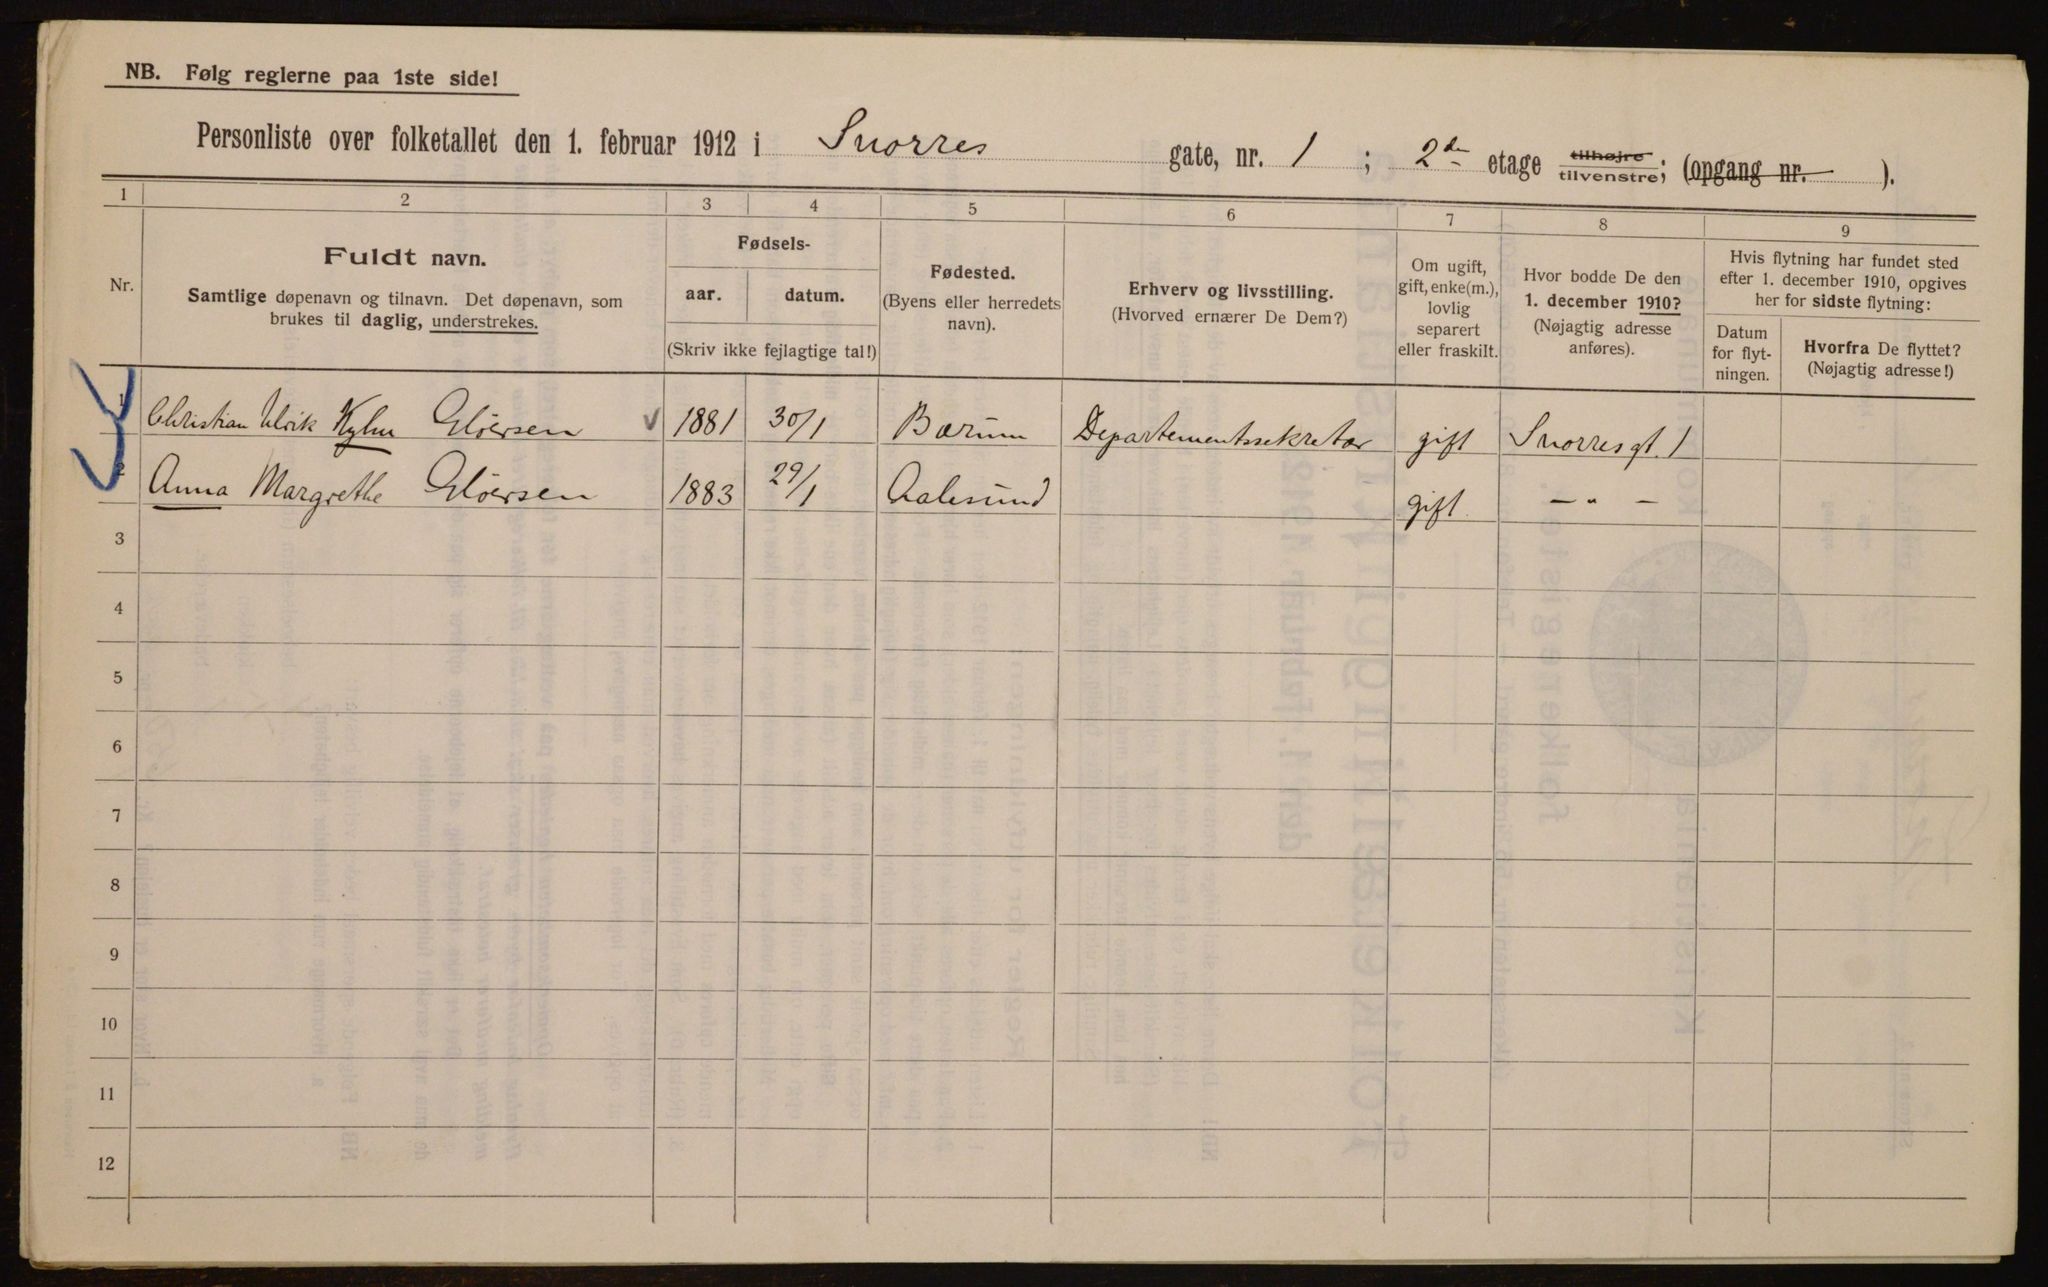 NB. Følg reglerne paa 1ste side!
Personliste over folketallet den 1. februar 1912 i Snorres gate, nr. 1 ; 2den etage tilhøjre tilvenstre; (opgang nr. ).
1 2 3 4 5 6 7 8 9
Nr.
Fuldt navn.
Samtlige døpenavn og tilnavn. Det døpenavn, som
brukes til daglig, understrekes.
Fødsels-
aar. datum.
(Skriv ikke fejlagtige tal!)
Fødested.
(Byens eller herredets
navn).
Erhverv og livsstilling.
(Hvorved ernærer De Dem?)
Om ugift,
gift, enke(m.),
lovlig
separert
eller fraskilt.
Hvor bodde De den
1. december 1910?
(Nøjagtig adresse
anføres).
Hvis flytning har fundet sted
efter 1. december 1910, opgives
her for sidste flytning:
Datum
for flyt-
ningen.
Hvorfra De flyttet?
(Nøjagtig adresse!)
1 Christian Ulrik Kyhn Gløersen 1881 30/1 Bærum Departementssekretær gift Snorresgt. 1
2 Anna Margrethe Gløersen 1883 29/1 Aalesund gift — " —
3
4
5
6
7
8
9
10
11
12